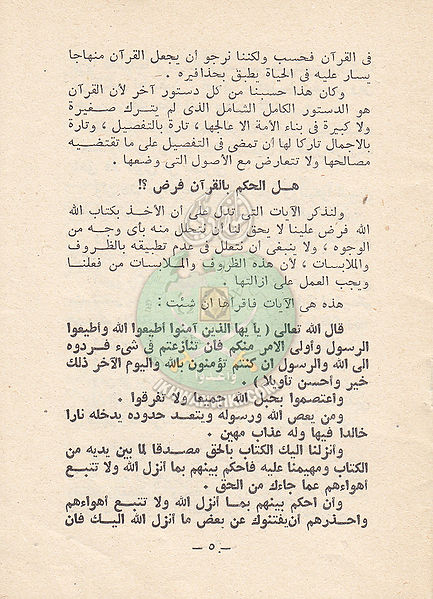 فى القرآن فحسب ولكننا نرجو أن يجعل القرآن منهاجا
يسار عليه فى الحياة يطبق بحذافيره .
وكان هذا حسبنا من كل دستور آخر لأن القرآن
هو الدستور الكامل الشامل الذى لم يترك صغيرة
ولا كبيرة فى بناء الأمة الا عالجها ، تارة بالتفصيل ، وتارة
بالاجمال تاركا لها أن تمضى فى التفصيل على ما تقتضيه
مصالحها ولا تتعارض مع الأصول التى وضعها .
هل الحكم بالقرآن فرض ؟!
ولنذكر الآيات التى تدل على أن الأخذ بكتاب الله
الله فرض علينا لا يحق لنا أن نتحلل منه بأى وجه من
الوجوه ، ولا ينبغى أن نتعلل فى عدم تطبيقه بالظروف
والملابسات ، لأن هذه الظروف والملابسات من فعلنا
ويجب العمل على ازالتها .
هذه هى الآيات فاقرأها ان شئت :
قال الله تعالى ( يا يها الذين آمنوا أطيعوا الله وأطيعوا
الرسول وأولى الامر منكم فان تنازعتم فى شىء فردوه
الى الله والرسول ان كنتم تؤمنون بالله واليوم الآخر ذلك
خير وأحسن تأويلا ) .
واعتصموا بحبل الله جميعا ولا تفرقوا .
ومن يعص الله ورسوله ويتعد حدوده يدخله نارا
خالدا فيها وله عذاب مهين .
وأنزلنا اليك الكتاب بالحق مصدقا لما بين يديه من
الكتاب ومهيمنا عليه فاحكم بينهم بما أنزل الله ولا تتبع
أهواءهم عما جاءك من الحق .
وأن احكم بينهم بما أنزل الله ولا تتبع أهواءهم
واحذرهم أن يفتنوك عن بعض ما أنزل الله اليك فان
— ٥ —